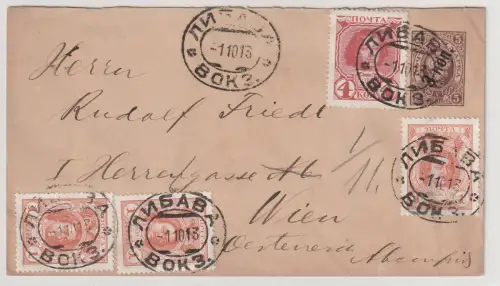 ЛИБАВА
-1 10 13
ВОКЗ.
ПОЧТА
4
ЛИБАВА
-1 10 13
ВОКЗ.
5
5
Herrn
Rudolf Friedl
I Herrengasse
1/11.
Wien
Oesterreich
ЛИБАВА
-1 10 13
ВОКЗ.
ЛИБАВА
ВОКЗ.
ЛИБАВА
-1 10 13
ВОКЗ.